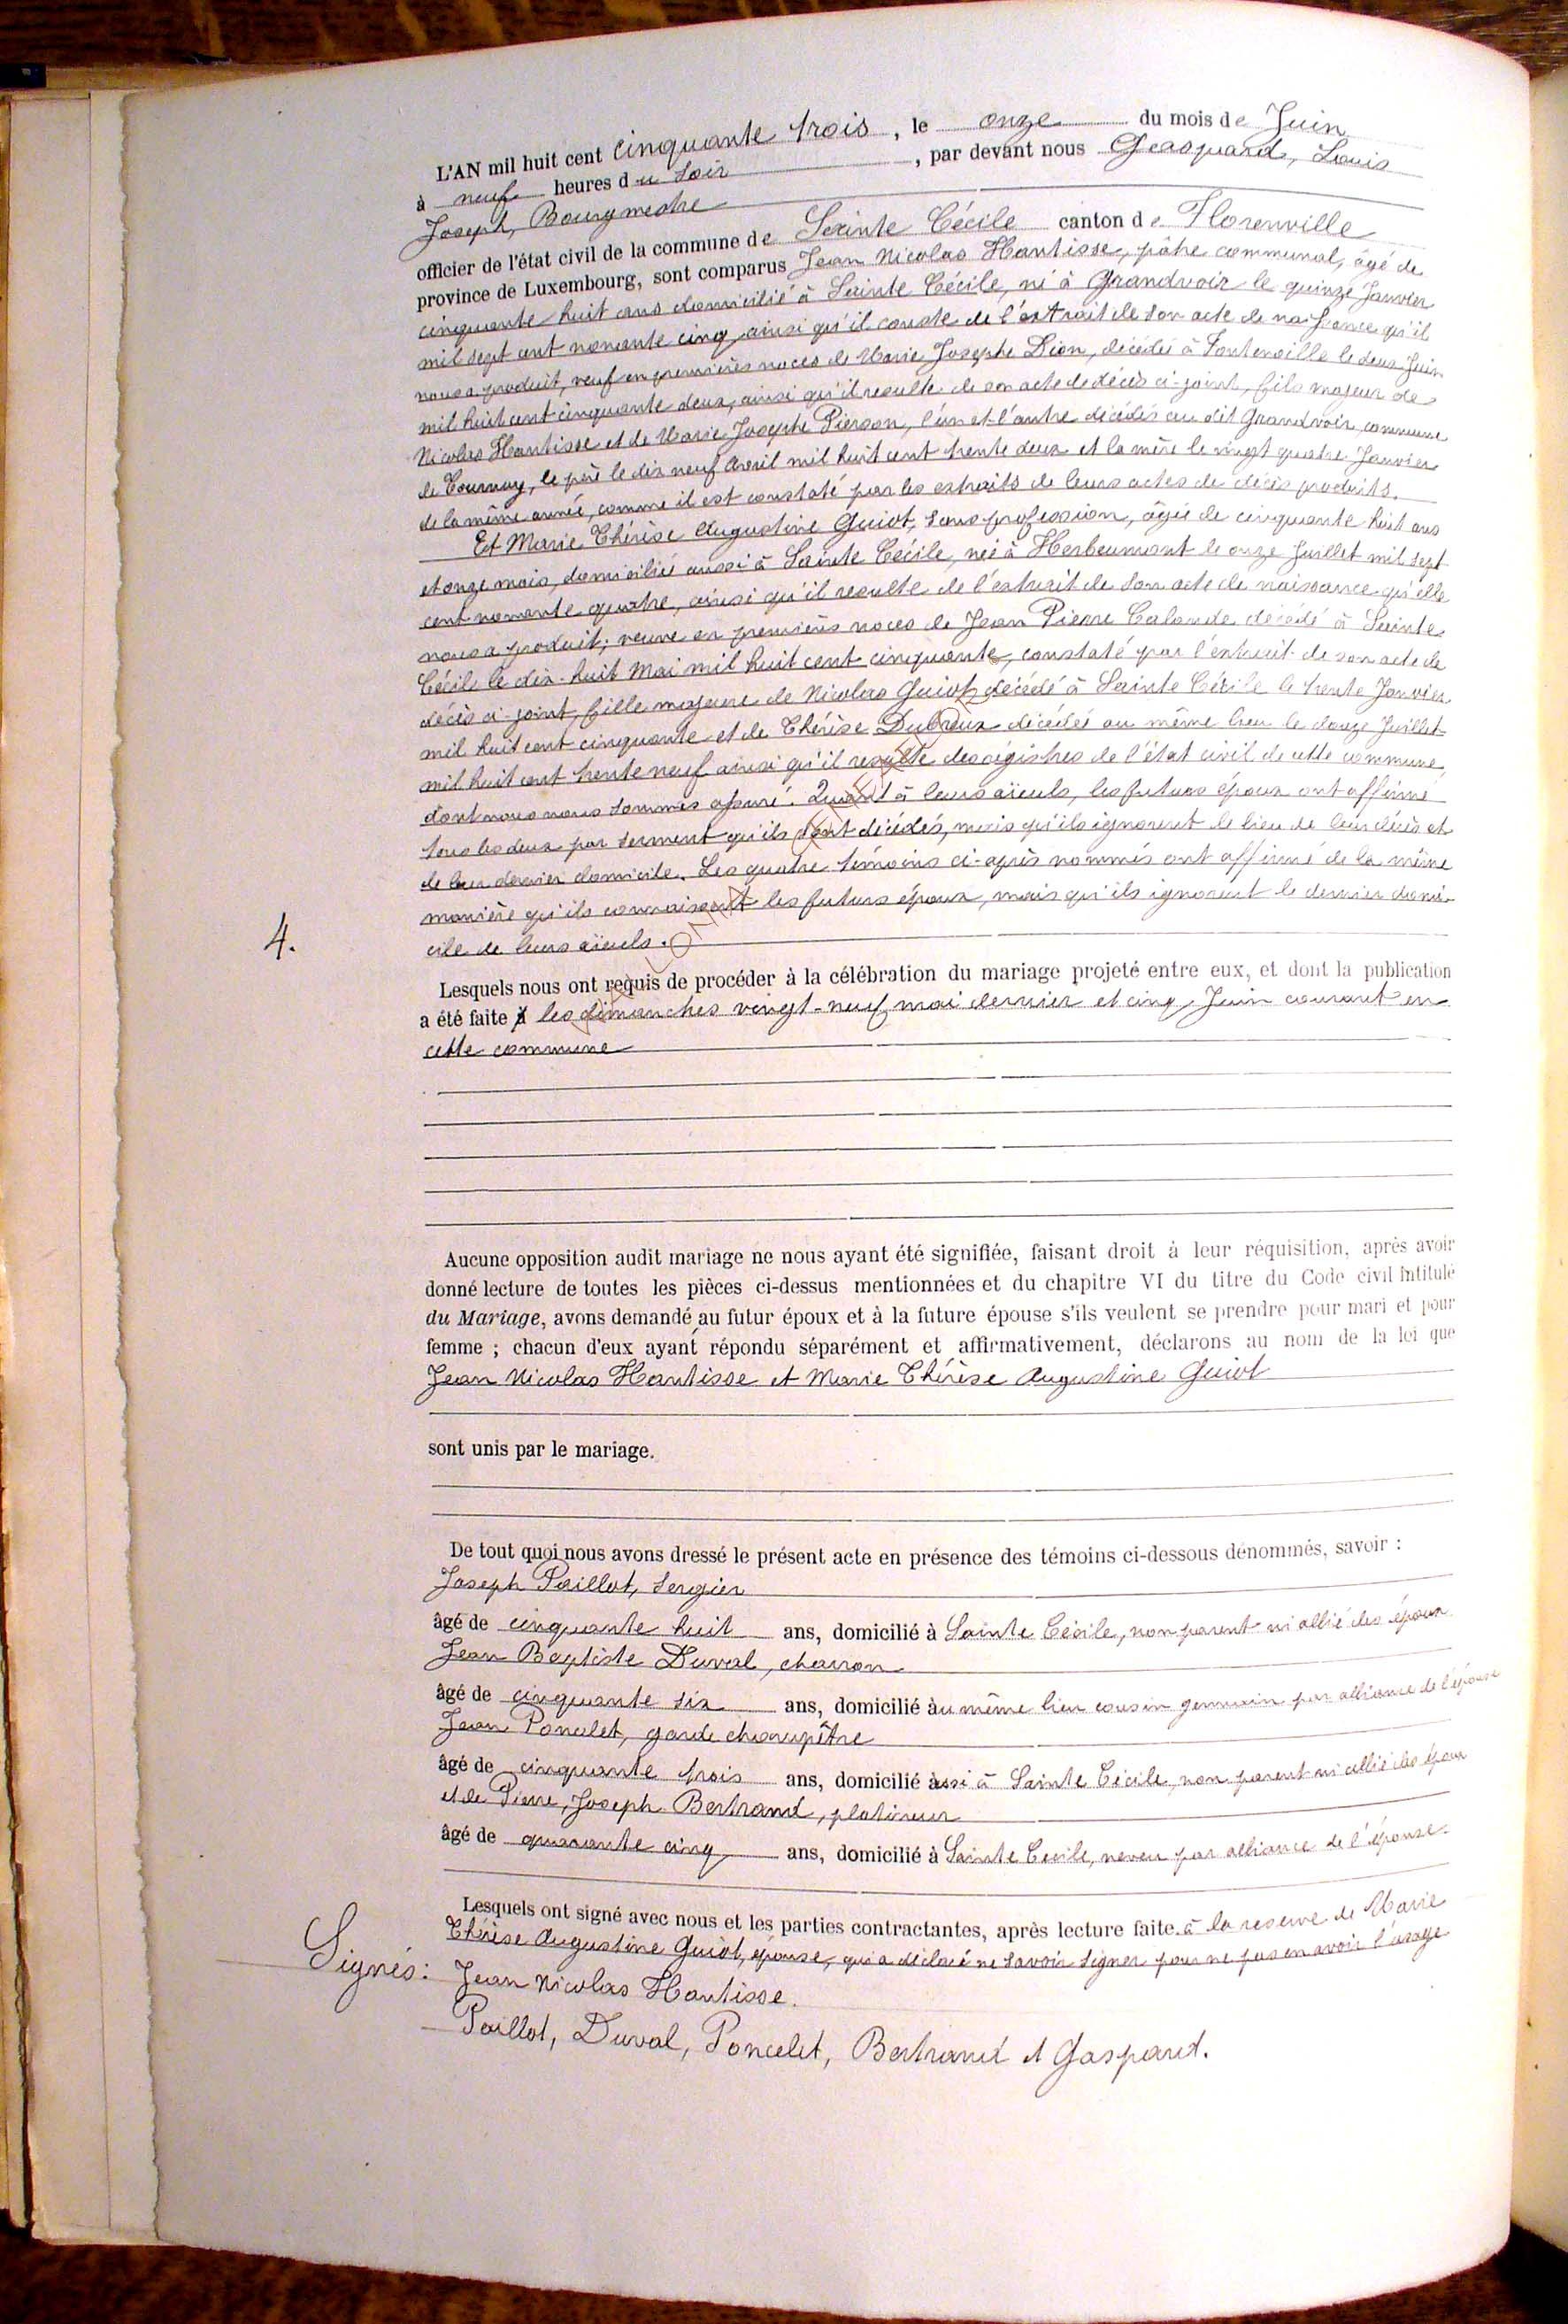 L'AN mil huit cent cinquante trois, le onze du mois de Juin
à neuf heures du soir, par devant nous Gaspard, Louis
Joseph, Bourgmestre
officier de l'état civil de la commune de Sainte Cécile canton de Florenville
province de Luxembourg, sont comparus Jean Nicolas Hautisse, pâtre communal, âgé de
cinquante huit ans domicilié à Sainte Cécile, né à Grandvoir le quinze Janvier
mil sept cent nonante cinq ainsi qu'il conste de l'extrait de son acte de naissance qu'il
nous a produit, veuf en premières noces de Marie Josephe Dion, décédée à Fontenoille le deux Juin
mil huit cent cinquante deux, ainsi qu'il resulte de son acte de décès ci-joint, fils majeur de
Nicolas Hautisse et de Marie Josephe Pierson, l'un et l'autre décédés au dit Grandvoir, commune
de Tournay, le père le dix neuf Avril mil huit cent trente deux et la mère le vingt quatre Janvier
de la même année, comme il est constaté par les extraits de leurs actes de décès produits.
Et Marie Thérèse Augustine Guiot, sans profession, âgée de cinquante huit ans
et onze mois, domiciliée aussi à Sainte Cécile, née à Herbeumont le onze Juillet mil sept
cent nonante quatre, ainsi qu'il resulte de l'extrait de son acte de naissance qu'elle
nous a produit; veuve en premières noces de Jean Pierre Calande décédé à Sainte
Cécile le dix-huit Mai mil huit cent cinquante, constaté par l'extrait de son acte de
décès ci-joint, fille majeure de Nicolas Guiot décédé à Sainte Cécile le trente Janvier
mil huit cent cinquante et de Thérèse Dubreux décédée au même lieu le douze Juillet
mil huit cent trente neuf ainsi qu'il resulte des régistres de l'état civil de cette commune,
dont nous nous sommes assuré. Quant à leurs aïeuls, les futurs époux ont affirmé
tous les deux par serment qu'ils sont décédés, mais qu'ils ignorent le lieu de leur décès et
de leur dernier domicile. Les quatre témoins ci-après nommés ont affirmé de la même
manière qu'ils connaissent les futurs époux, mais qu'ils ignorent le dernier domi-
4.
cile de leurs aïeuls.
Lesquels nous ont requis de procéder à la célébration du mariage projeté entre eux, et dont la publication
a été faite à les dimanches vingt-neuf mai dernier et cinq Juin courant en
cette commune
Aucune opposition audit mariage ne nous ayant été signifiée, faisant droit à leur réquisition, après avoir
donné lecture de toutes les pièces ci-dessus mentionnées et du chapitre VI du titre du Code civil intitulé
du Mariage, avons demandé au futur époux et à la future épouse s'ils veulent se prendre pour mari et pour
femme ; chacun d'eux ayant répondu séparément et affirmativement, déclarons au nom de la loi que
Jean Nicolas Hautisse et Marie Thérèse Augustine Guiot
sont unis par le mariage.
De tout quoi nous avons dressé le présent acte en présence des témoins ci-dessous dénommés, savoir :
Joseph Paillot, sergier
âgé de cinquante huit ans, domicilié à Sainte Cécile, non parent ni allié des époux
Jean Baptiste Duval, charron
âgé de cinquante six ans, domicilié au même lieu cousin germain par alliance de l'épouse
Jean Poncelet, garde champêtre
âgé de cinquante trois ans, domicilié aussi à Sainte Cécile, non parent ni allié des époux
et de Pierre, Joseph Bertrand, platineur
âgé de quarante cinq ans, domicilié à Sainte Cécile, neveu par alliance de l'épouse.
Lesquels ont signé avec nous et les parties contractantes, après lecture faite à la reserve de Marie
Thérèse Augustine Guiot, épouse, qui a déclaré ne savoir signer pour ne pas en avoir l'usage
Signés: Jean Nicolas Hautisse.
Paillot, Duval, Poncelet, Bertrand et Gaspard.